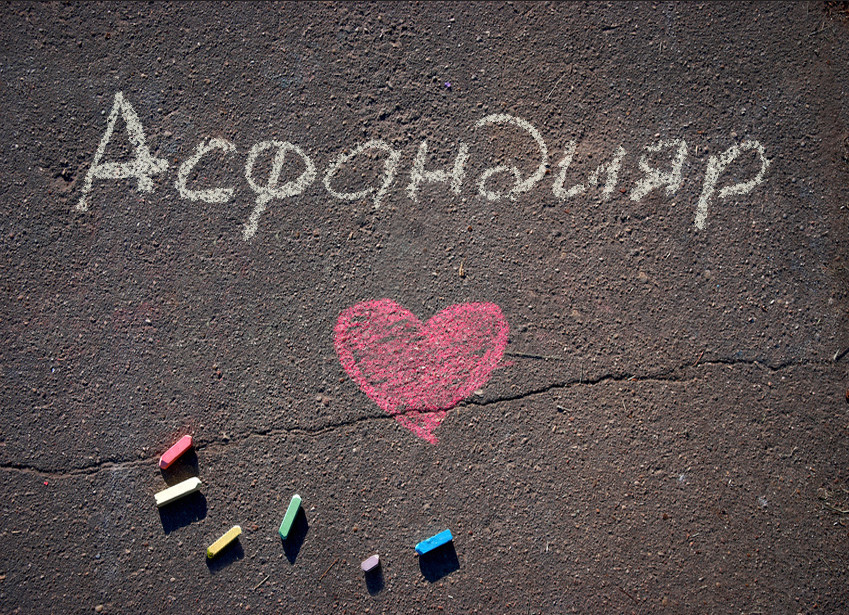 Асфандияр